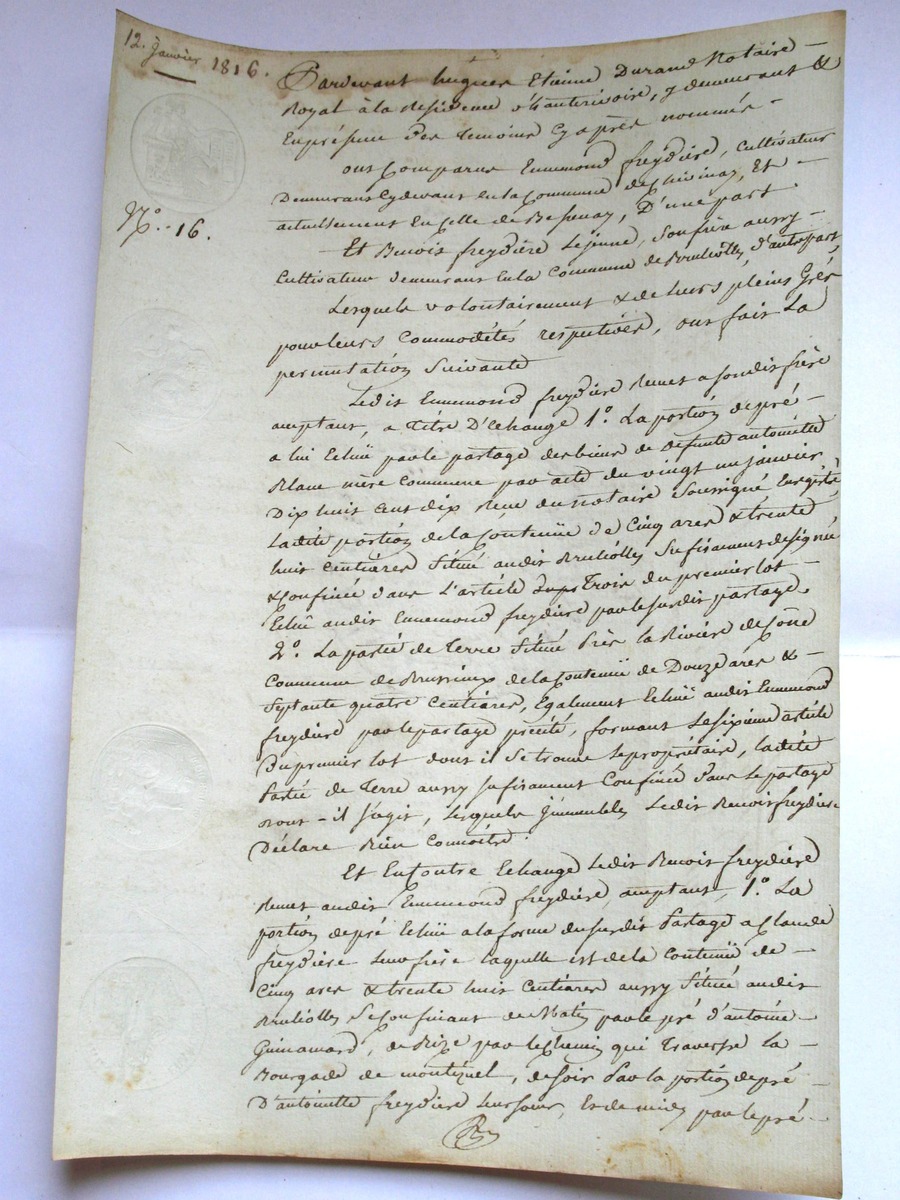 12. janvier 1816.
N.º 16.
Pardevant hugues Etienne Durand Notaire
Royal à la Residence d'hauterivoire, y demeurant &
En présence Des temoins Cy après nommés
ont Comparus Ennemond freydière, Cultivateur
Demeurant Cydevant En la Commune de Chivinay, Et
actuellement En Celle de Bessenay, D'une part
Et Benoit freydière Le jeune, Son frère aussy
Cultivateur demeurant En la Commune de Brulliolles, d'autre part
Lesquels volontairement & de leurs pleins Grés
pour leurs Commodités respectives, ont fait La
permutation Suivante
Ledit Ennemond freydière Remet a son dit frère
aceptant, a titre D'Echange 1.º La portion de pré
a lui Echüe par le partage des biens de defunte antoinette
Blanc mère Commune par acte du vingt un janvier
Dix huit cent dix Reçu du notaire Soussigné Enregistré
Ladite portion de la Contenüe de Cinq ares & trente
huit Centiares Située audit Brulliolles Sufisament designée
& Confinée dans L'article trois du premier lot
Echüe audit Ennemond freydière par le susdit partage.
2.º La partie de terre Située Près la Rivière de
Commune de Brussieux de la Contenüe de Douze ares &
Septante quatre Centiares, Egalement Echüe audit Ennemond
freydière par le partage précité, formant Le Sixieme article
Du premier lot dont il Se trouve Le propriétaire, ladite
Partie de terre aussy Sufisament Confinée Dans Le partage
dont-il s'agit, Lesquels jmmeubles Ledit Benoit freydière
Déclare Bien Connoitre.
Et En Contre Echange Ledit Benoit freydière
Remet audit Ennemond freydière aceptant, 1.º La
portion de pré Echüe a la forme du susdit Partage a Claude
freydière Leur frère laquelle est de la Contenüe de
Cinq ares & trente huit Centiares aussy Située audit
Brulliolles Se Confinant de Matin par le pré d'antoine
Guinamard, de Bize par le Chemin qui Traverse la
Bourgade de montezuel, de soir Par la portion de pré
D'antoinette freydière Leur sœur, Et de midy par le pré